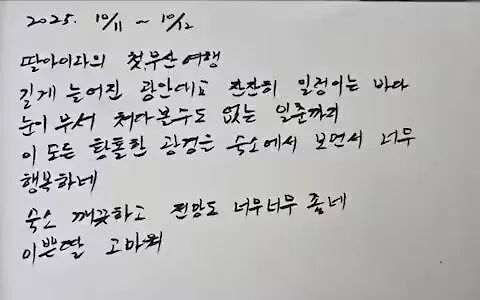 2025. 10/11 ~ 10/12
딸아이와의 첫 부산여행
길게 늘어진 광안대교 잔잔히 일렁이는 바다
눈이 부셔 쳐다볼수도 없는 일출까지
이 모든 황홀한 광경을 숙소에서 보면서 너무
행복하네
숙소 깨끗하고 전망도 너무너무 좋네
이쁜딸 고마워